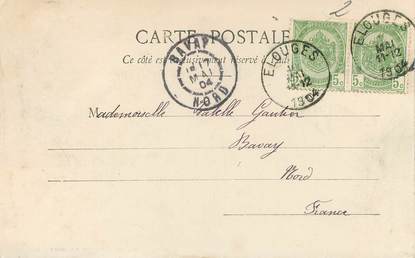 2
CARTE POSTALE
Ce côté est exclusivement réservé à
BAVAY
17
MAI
04
NORD
ELOUGES
12
1904
ELOUGES
MAI
11-12
1904
5c 5c
5c 5c
Mademoiselle Gautier
Bavay
Nord
France